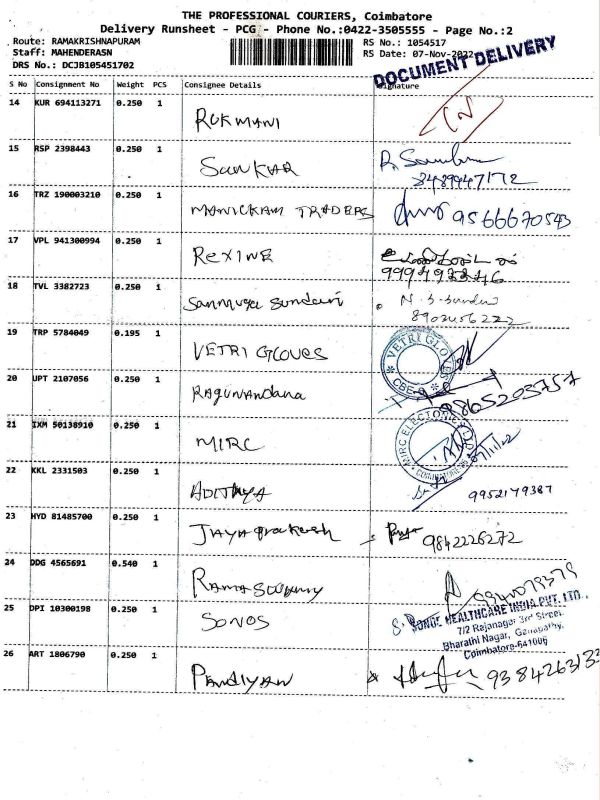 THE PROFESSIONAL COURIERS, Coimbatore
Delivery Runsheet - PCG - Phone No.:0422-3505555 - Page No.:2
Route: RAMAKRISHNAPURAM RS No.: 1054517
Staff: MAHENDERASN RS Date: 07-Nov-2022
DRS No.: DCJB105451702
DOCUMENT DELIVERY
S No Consignment No Weight PCS Consignee Details Signature
14 KUR 694113271 0.250 1 RUKMANI
15 RSP 2398443 0.250 1 SANKAR
8489947172
16 TRZ 190003210 0.250 1 MANICKAM TRADERS 9566670543
17 VPL 941300994 0.250 1 REXINE
18 TVL 3382723 0.250 1 Sanmuga Sundari N. S. Sundar
19 TRP 5784049 0.195 1 VETRI GLOVES VETRI GLOVES
20 UPT 2107056 0.250 1 Ragunandana 9865203757
21 IXM 50138910 0.250 1 MIRC
22 KKL 2331503 0.250 1 ADITHYA 9952179387
23 HYD 81485700 0.250 1 Jayaprakash 9842226272
24 DDG 4565691 0.540 1 RAMASWAMY
25 DPI 10300198 0.250 1 SONOS
HEALTHCARE INDIA PVT. LTD.,
7/2 Rajanagar 3rd Street,
Bharathi Nagar, Ganapathy,
Coimbatore-641006
26 ART 1806790 0.250 1 PANDIYAN